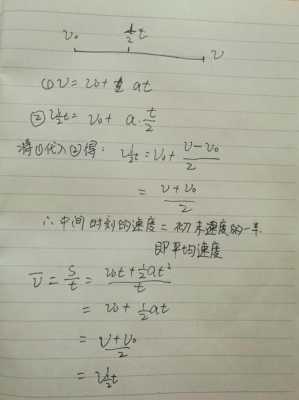 v₀ ½t v
① v = v₀ + at
② v½t = v₀ + a·t/2
将①代入②得: v½t = v₀ + (v-v₀)/2
= (v+v₀)/2
∴ 中间时刻的速度 = 初末速度的一半
即平均速度
v̅ = s/t = (v₀t+½at²)/t
= v₀ + ½at
= (v+v₀)/2
= v½t